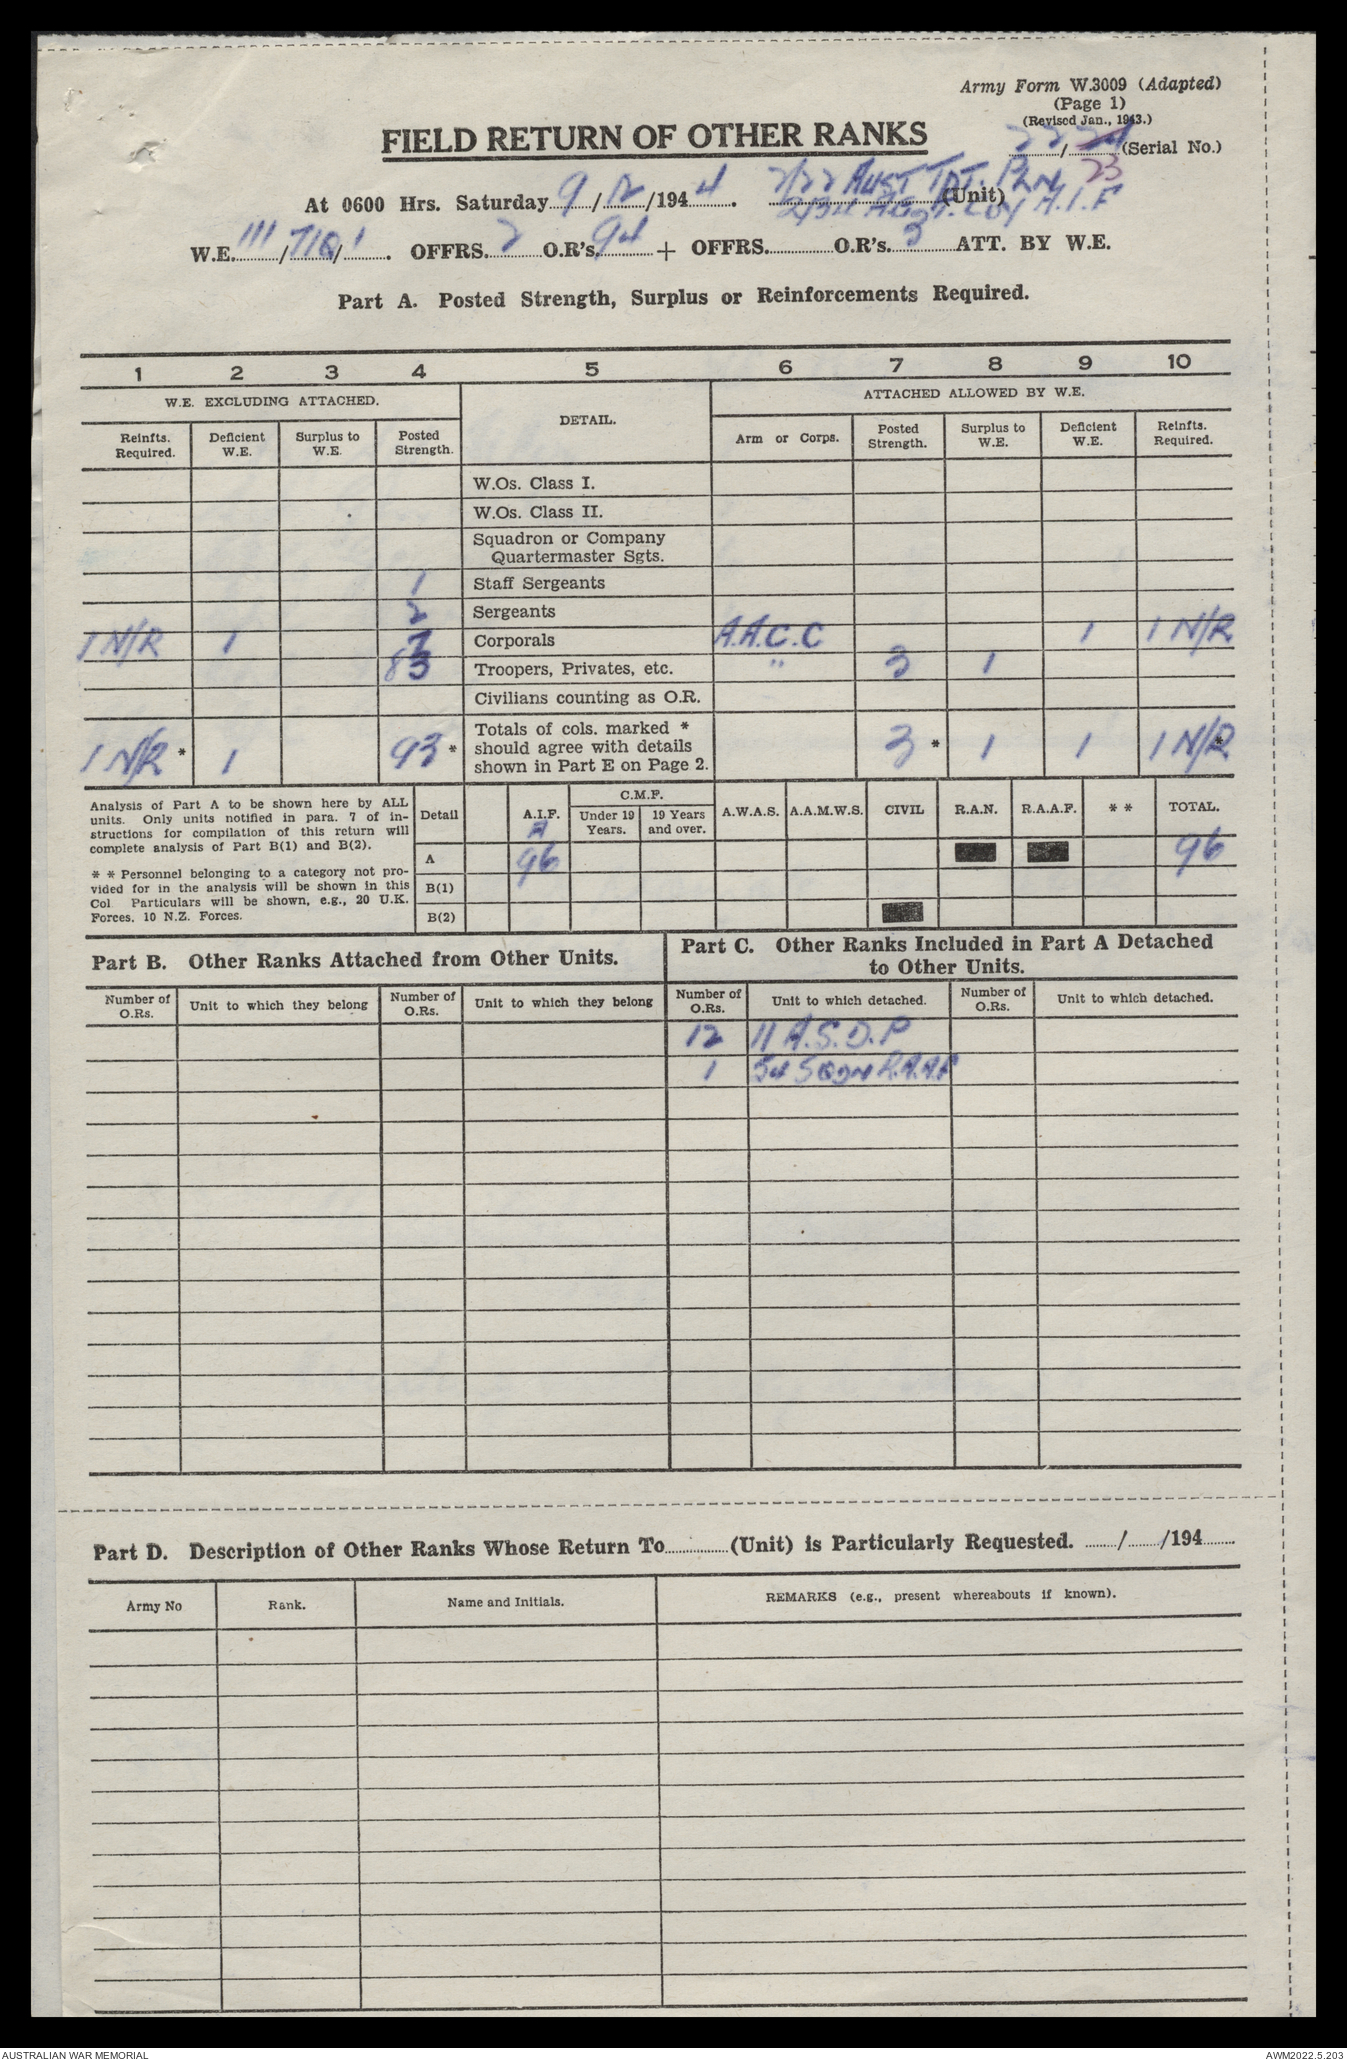 Army Form W.3009 (Adapted)
(Page 1)
(Revised Jan., 1943.)
FIELD RETURN OF OTHER RANKS
22/ 23 (Serial No.)
At 0600 Hrs. Saturday 9/12/1944. 2/22 AUST TPT. PLN (Unit)
A.I.F
W.E. 111/ / 1. OFFRS. 2 O.R's. 94 + OFFRS. O.R's. 3 ATT. BY W.E.
Part A. Posted Strength, Surplus or Reinforcements Required.
1 2 3 4 5 6 7 8 9 10
W.E. EXCLUDING ATTACHED. DETAIL. ATTACHED ALLOWED BY W.E.
Reinfts. Required. Deficient W.E. Surplus to W.E. Posted Strength. Arm or Corps. Posted Strength. Surplus to W.E. Deficient W.E. Reinfts. Required.
W.Os. Class I.
W.Os. Class II.
Squadron or Company
Quartermaster Sgts.
1 Staff Sergeants
2 Sergeants
1 N/R 1 7 Corporals A.A.C.C 1 1 N/R
83 Troopers, Privates, etc. " 3 1
Civilians counting as O.R.
Totals of cols. marked *
1 N/R * 1 93 * should agree with details 3 * 1 1 1 N/R *
shown in Part E on Page 2.
Analysis of Part A to be shown here by ALL
units. Only units notified in para. 7 of in-
structions for compilation of this return will
complete analysis of Part B(1) and B(2).
* * Personnel belonging to a category not pro-
vided for in the analysis will be shown in this
Col. Particulars will be shown, e.g., 20 U.K.
Forces, 10 N.Z. Forces.
Detail A.I.F. C.M.F. Under 19 Years. 19 Years and over. A.W.A.S. A.A.M.W.S. CIVIL R.A.N. R.A.A.F. * * TOTAL.
A 96 96
B(1)
B(2)
Part B. Other Ranks Attached from Other Units.
Part C. Other Ranks Included in Part A Detached
to Other Units.
Number of O.Rs. Unit to which they belong Number of O.Rs. Unit to which they belong Number of O.Rs. Unit to which detached. Number of O.Rs. Unit to which detached.
12 11 A.S.D.P
1 54 SQDN R.A.A.F
Part D. Description of Other Ranks Whose Return To (Unit) is Particularly Requested. / /194
Army No Rank. Name and Initials. REMARKS (e.g., present whereabouts if known).
AUSTRALIAN WAR MEMORIAL AWM2022.5.203